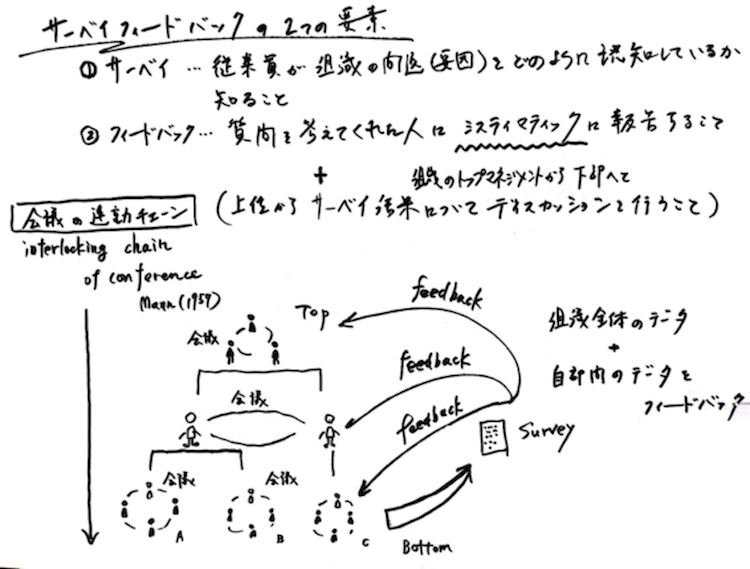 サーベイフィードバックの2つの要素
① サーベイ … 従業員が組織の問題(要因)をどのように認知しているか
知ること
② フィードバック… 質問を考えてくれた人にシステマティックに報告すること
+ 組織のトップマネジメントから下部へと
会議の連動チェーン (上位からサーベイ結果についてディスカッションを行うこと)
interlocking chain
of conference
Mann(1957)
Top
feedback
会議
組織全体のデータ
+
自部門のデータを
フィードバック
feedback
会議
feedback
Survey
会議
会議
A
B
C
Bottom